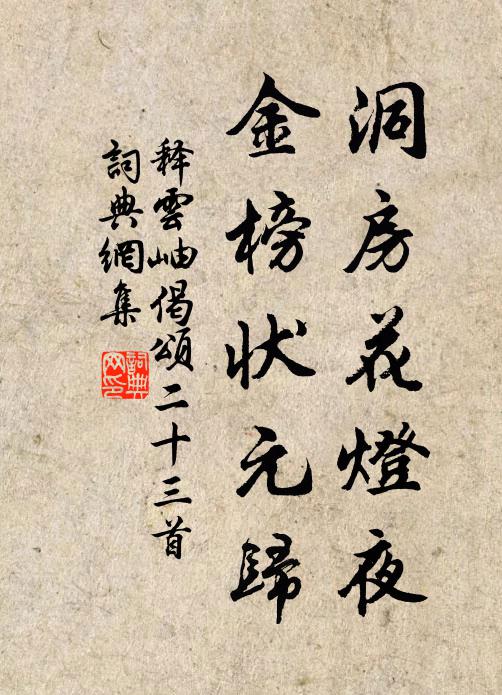 洞房花燈夜
金榜狀元歸
釋雲岫偈頌二十三首
詞典網集
詞典网印